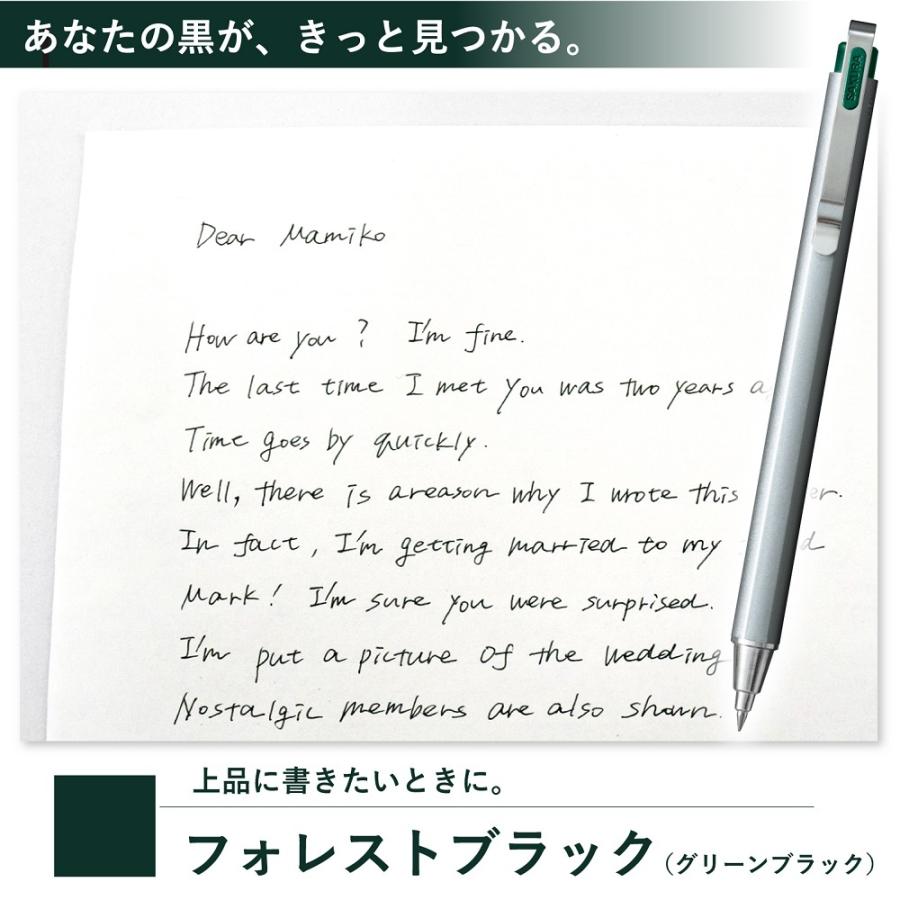 あなたの黒が、きっと見つかる。
SAKURA
Dear Mamiko
How are you? I'm fine.
The last time I met you was two years a
Time goes by quickly.
Well, there is areason why I wrote this er.
In fact, I'm getting married to my d
Mark! I'm sure you were surprised.
I'm put a picture of the wedding
Nostalgic members are also shown.
上品に書きたいときに。
フォレストブラック(グリーンブラック)